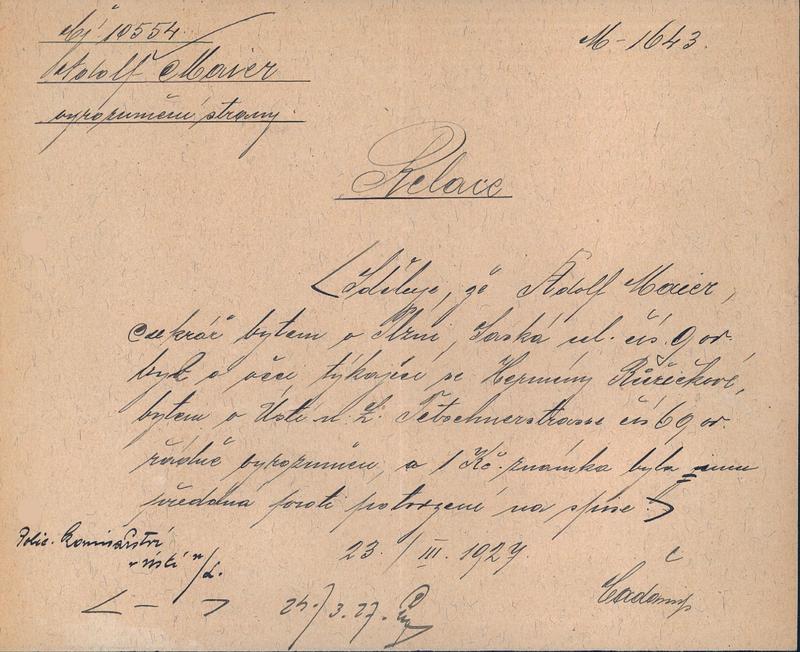 Čj. 10554.
M-1643.
Adolf Maier
vyrozumění strany.
Relace
Sděluje, že Adolf Maier,
cukrář bytem v Plzni, Saská ul. čís. 9 or.
byl o věci týkající se Hermíny Růžičkové,
bytem v Ústí n. L. Tetschnerstrasse čís 69 or.
řádně vyrozuměn, a 1 Kč. známka byla jemu
úředána proti potvrzení na spise.
Polic. komisařství
v Ústí n/L.
23./III. 1927.
24./3.27.